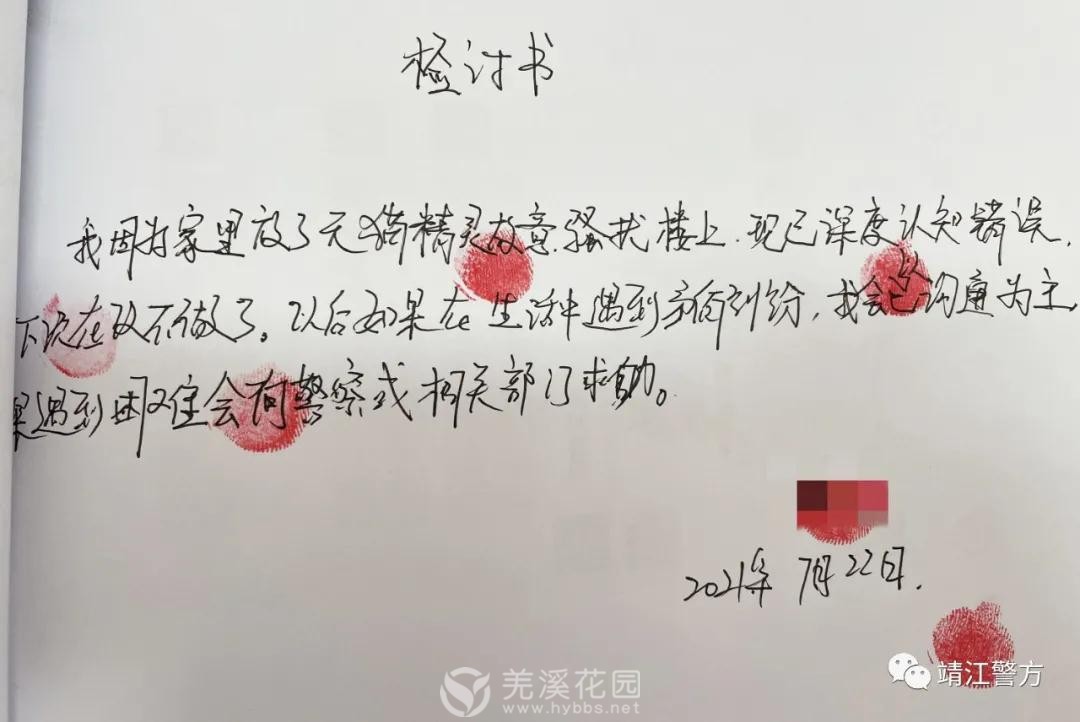 检讨书
我因为家里放了天猫精灵故意骚扰楼上.现已深度认知错误,
下次在改不做了。以后如果在生活中遇到方纠纷,我会已沟通为主
果遇到困难会向警察或相关部门求助。
2021年7月22日.
靖江警方
羌溪花园
www.hybbs.net